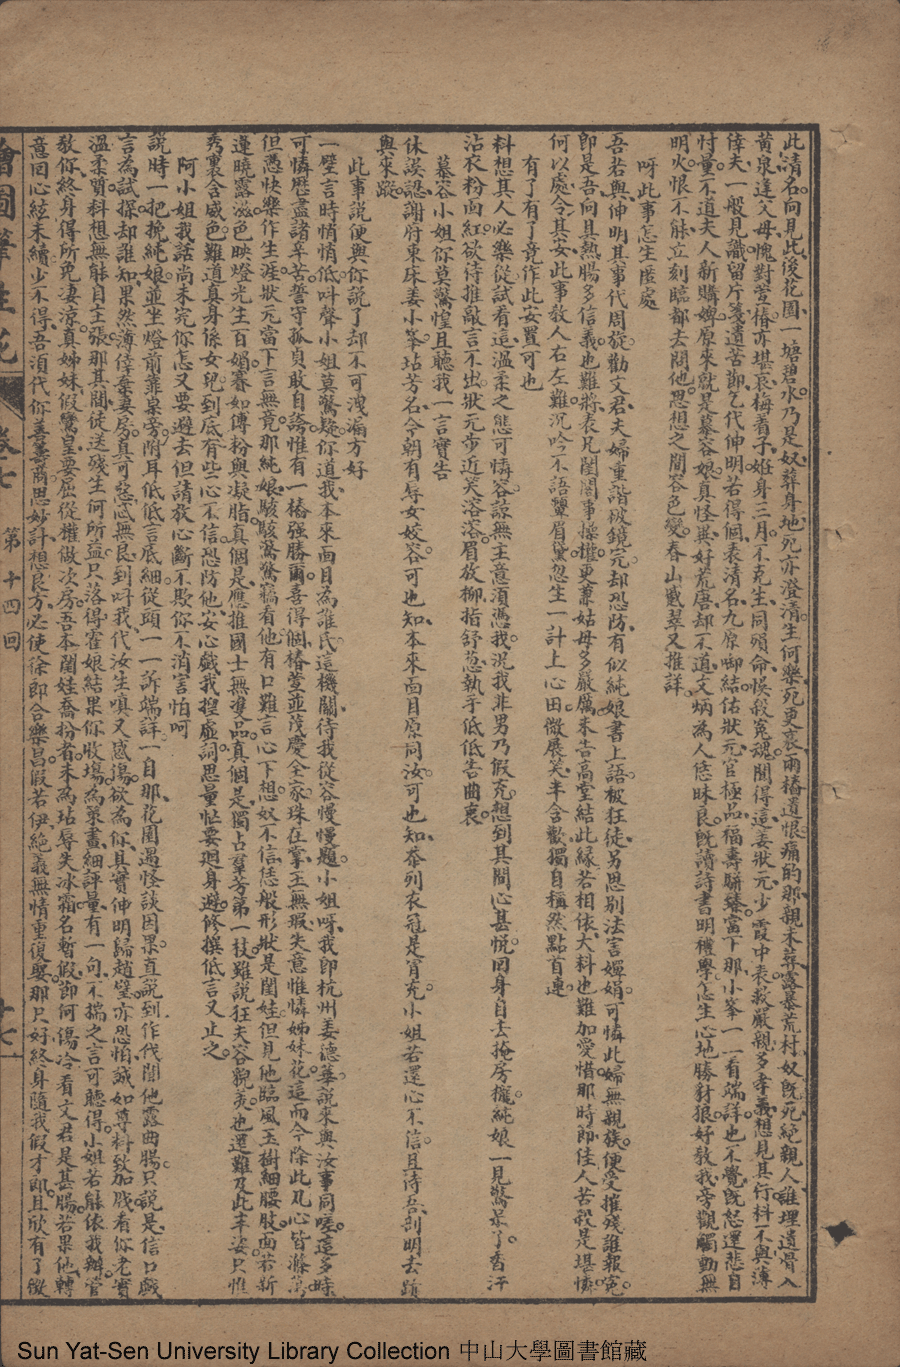 此清石向見此後花園一塘碧水乃是奴葬身地死亦澄清生何樂死更哀兩樁遺恨痛的那親未葬露暴荒村奴既死絕親人誰埋遺骨入
黃泉逢父母愧對萱椿亦堪哀梅着子姙身三月不克生同殞命悞殺冤魂關得這姜狀元少霞中表救嚴親多孝義想見其行料不與薄
倖夫一般見識留片箋遺苦節乞代伸明若得個表清名九原啣結估狀元官極品福壽駢臻當下那小峯一一看端詳也不覺既怒還悲自
忖量不道夫人新購婢原來就是慕容娘真怪異好荒唐却不道文炳為人恁昧良既讀詩書明禮學怎生心地勝豺狼好教我旁觀觸動無
明火恨不能立刻臨都去問他思想之間容色變春山蹙翠又推詳
呀此事怎生區處
吾若與伸明其事代周旋勸文君夫婦重諧被鏡完却恐防有似純娘書上語被狂徒另思别法害嬋娟可憐此婦無親族便受摧殘誰報冤
即是吾向具熱腸多信義也難將表兄閨閫事操權更兼姑母多嚴厲未告高堂結此緣若相依大料也難加愛惜那時節佳人苦殺是堪憐
何以處令其安此事教人右左難沉吟不語顰眉黛忽生一計上心田微展笑半含歡獨自稱然點首連
有了有了竟作此安置可也
料想其人必樂從試看這溫柔之態可憐容諒無主意須憑我況我非男乃假充想到其間心甚悅回身自去掩房櫳純娘一見驚呆了香汗
沾衣粉面紅欲待推敲言不出狀元步近笑溶溶眉放柳指舒葱執手低低告曲衷
慕容小姐你莫驚惶且聽我一言實告
休誤認謝府東床姜小峯玷芳名今朝有辱女姣容可也知本來面目原同汝可也知忝列衣冠是冒充小姐若還心不信且待吾剖明去蹟
與來蹤
此事說便與你說了却不可洩漏方好
一壁言時悄悄低叫聲小姐莫驚疑你道我本來面目為誰氏這機關待我從容慢慢題小姐呀我即杭州姜德華說來與汝事同嗟這多時
可憐歷盡諸牟苦誓守孤貞敢自誇惟有一樁強勝爾喜得個椿萱並茂慶全家珠在掌玉無瑕失意惟憐姊妹花這而今除此凡心皆滌蕩
但憑快樂作生涯狀元當下言無竟那純娘駭駭驚驚竊看他有口難言心下想奴不信恁般形狀是閨娃但見他臨風玉樹細腰肢面若新
蓮曉露滋色映燈光生百媚賽如傅粉與凝脂真個是應推國士無雙品真個是獨占羣芳第一枝雖說狂夫容貌美也還難及此丰姿只惟
秀裏含威色難道真身係女兒到底有些心不信恐防他安心戲我捏虛詞思量忙要迴身避修撰低言又止之
阿小姐我話尚未完你怎又要避去但請放心斷不欺你不消害怕呵
說時一把挽純娘並坐燈前靠桌旁附耳低低言底細從頭一一訴端詳一自那花園遇怪談因果直說到作伐閒他露曲腸只說是信口戲
言為試探却誰知果然薄倖棄妻房真可惡忒無良到吁我代汝生嗔又感傷欲為你具實伸明歸趙璧亦恐怕誠如尊料致加戕看你老實
溫柔質料想無能自主張那其間徒送殘生何所益只落得霍娘結果你收場為策畫細評量有一句不揣之言可聽得小姐若能依我辦管
教你終身得所免凄涼真姊妹假鸞皇要屈從權做次房吾本閨娃喬扮者未為玷辱失冰霜名暫假節何傷冷看文君是甚腸若果他轉
意回心絃未續少不得吾須代你善善商思妙計想良方必使徐郎合樂昌假若伊絕義無情重復娶那只好終身隨我假才郎且欣有了微
繪圖筆生花 卷七 第十四回 十七
Sun Yat-Sen University Library Collection 中山大學圖書館藏